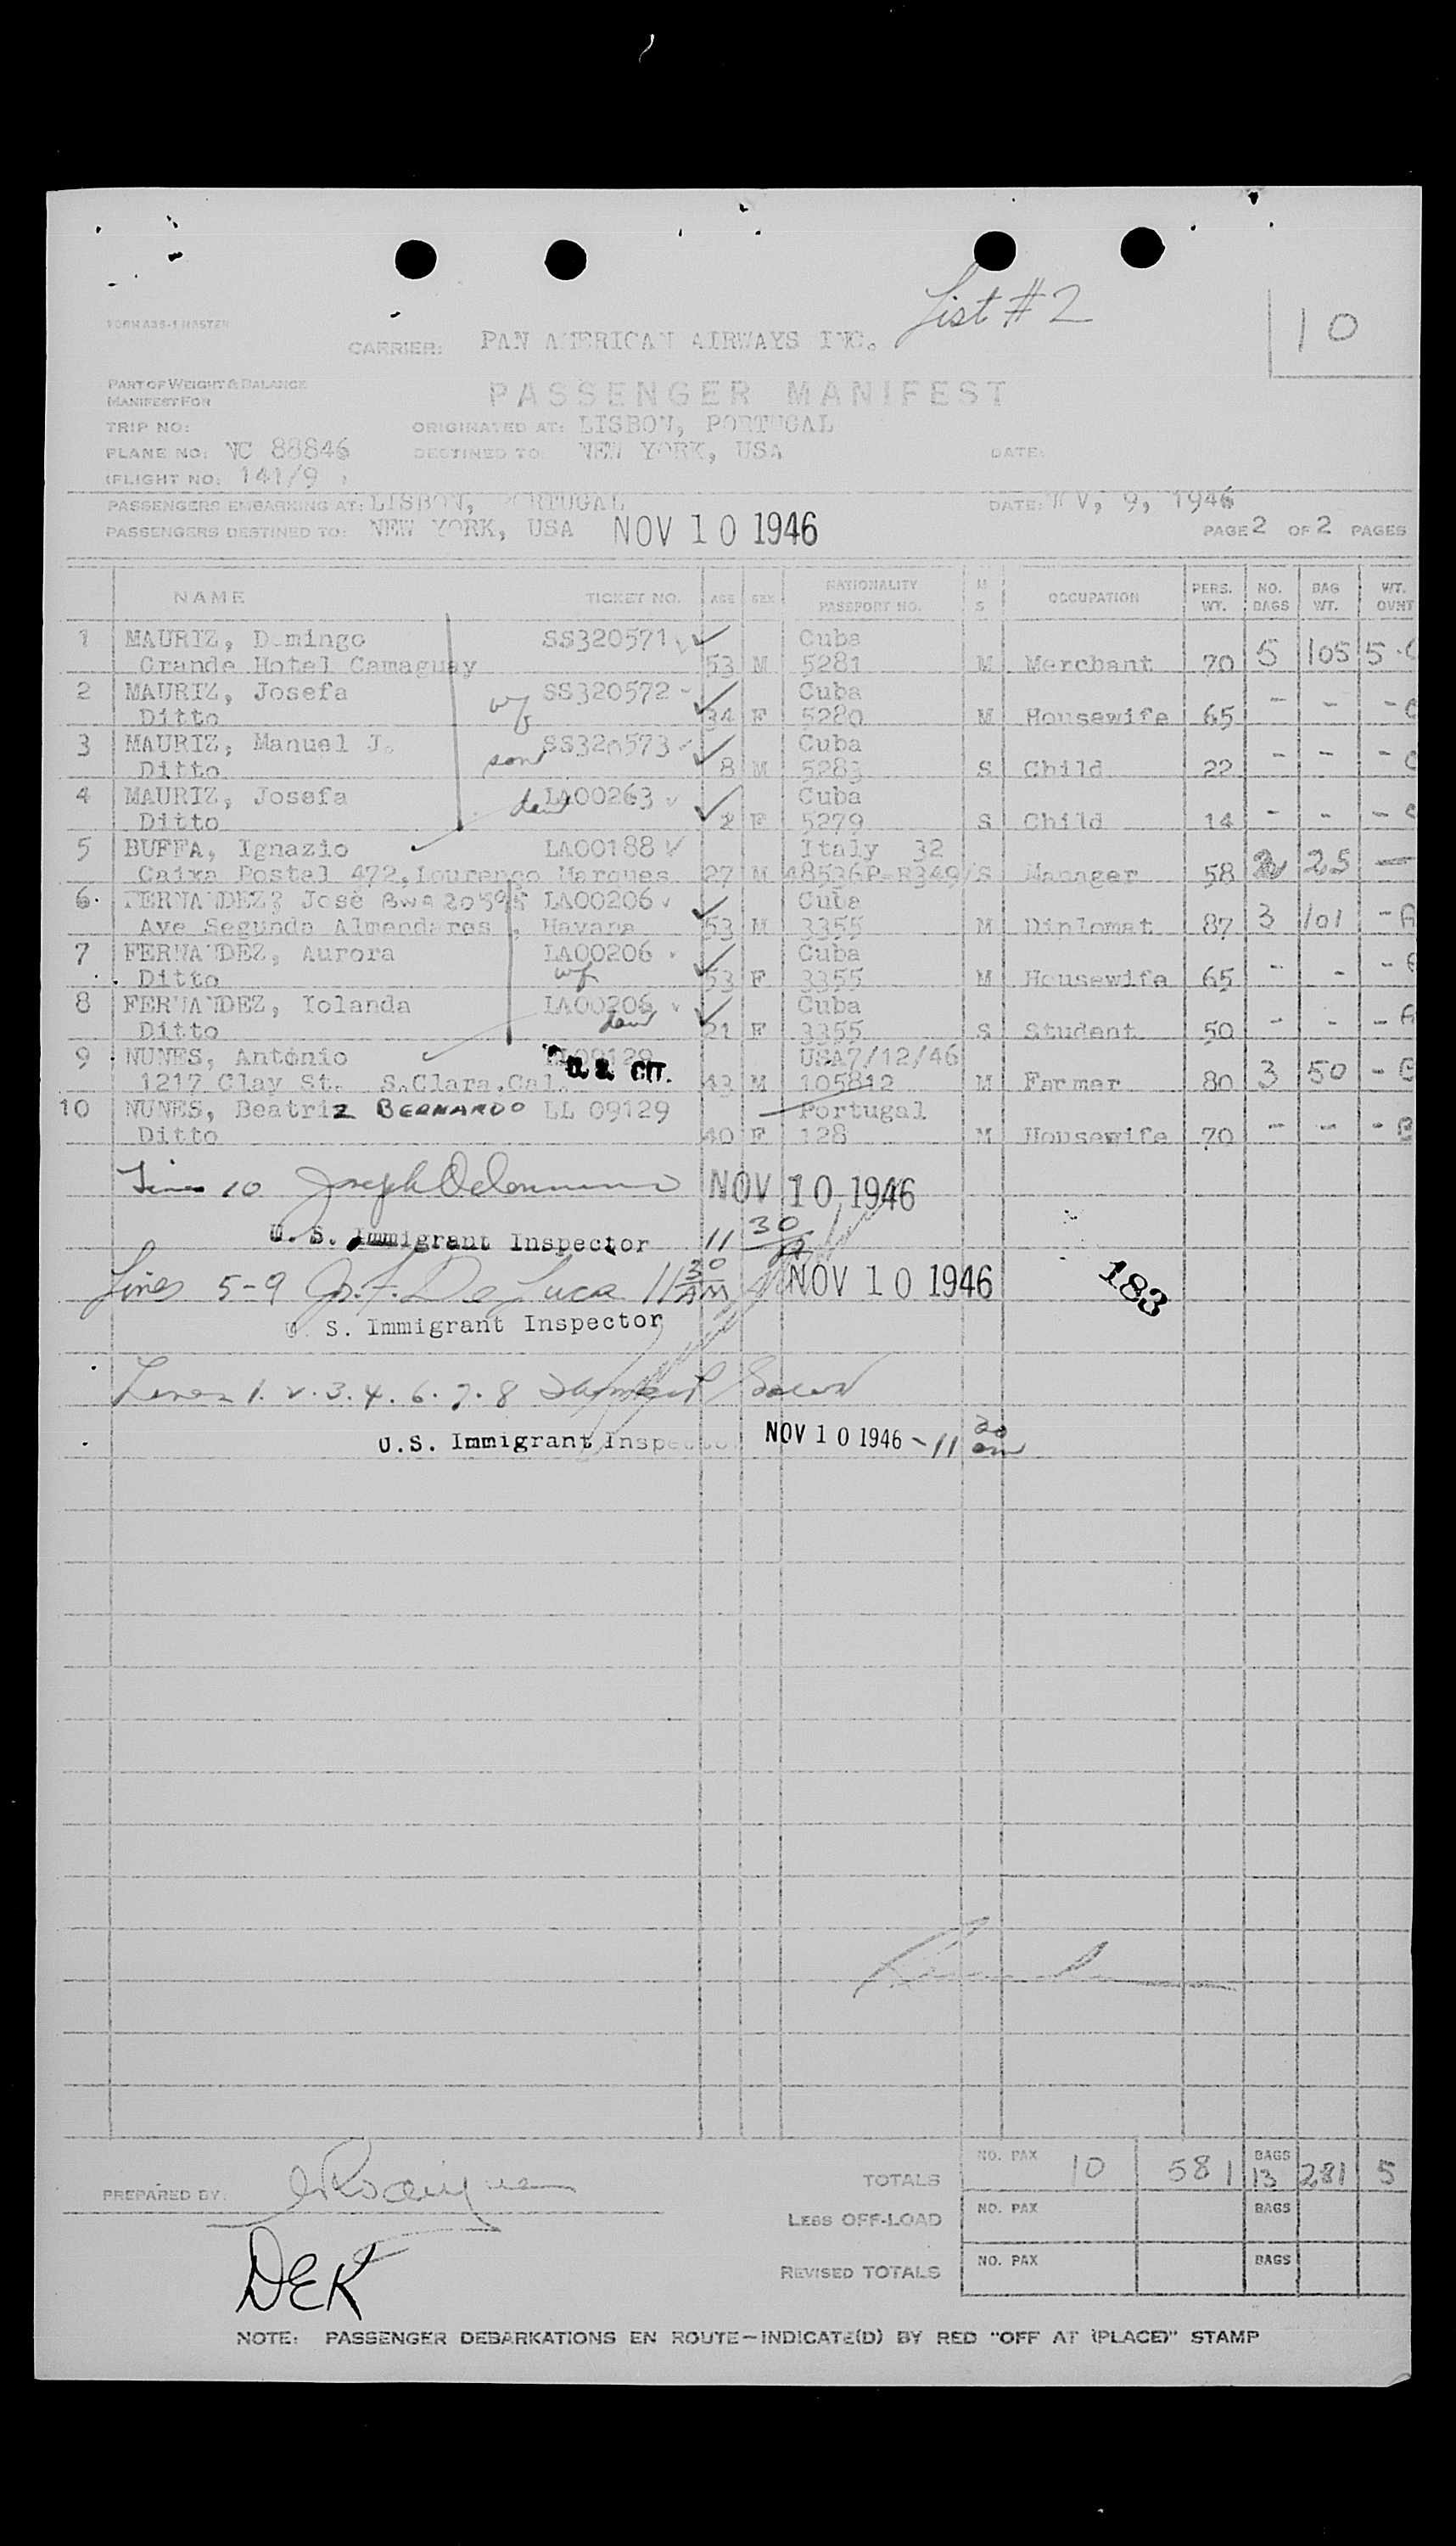 List # 2
10
FORM A35-1 MASTER
CARRIER: PAN AMERICAN AIRWAYS INC.
PART OF WEIGHT & BALANCE
MANIFEST FOR
PASSENGER MANIFEST
TRIP NO: ORIGINATED AT: LISBON, PORTUGAL
PLANE NO: NC 88846 DESTINED TO: NEW YORK, USA DATE:
(FLIGHT NO: 141/9
PASSENGERS EMBARKING AT: LISBON, PORTUGAL DATE: NOV, 9, 1946
PASSENGERS DESTINED TO: NEW YORK, USA NOV 10 1946 PAGE 2 OF 2 PAGES
NAME TICKET NO. AGE SEX NATIONALITY PASSPORT NO. M S OCCUPATION PERS. WT. NO. BAGS BAG WT. WT. OVNT
1 MAURIZ, Domingo SS320571 Cuba
Grande Hotel Camaguay 53 M 5281 M Merchant 70 5 105 5
2 MAURIZ, Josefa wf SS320572 - Cuba
Ditto 34 F 5280 M Housewife 65 - - -
3 MAURIZ, Manuel J. son SS320573 Cuba
Ditto 8 M 5283 S Child 22 - - -
4 MAURIZ, Josefa dau LA00263 Cuba
Ditto 2 F 5279 S Child 14 - - -
5 BUFFA, Ignazio LA00188 Italy 32
Caixa Postel 472, Lourenço Marques 27 M 48536P-R349/ S Manager 58 2 25 -
6. FERNANDEZ, José BWA 20595 LA00206 Cuba
Ave Segunda Almendares, Havana 53 M 3355 M Diplomat 87 3 101 - A
7 FERNANDEZ, Aurora LA00206 Cuba
Ditto wf 53 F 3355 M Housewife 65 - - -
8 FERNANDEZ, Iolanda LA00206 Cuba
Ditto dau 21 F 3355 S Student 50 - - - A
9 NUNES, António LL09129 USA7/12/46
1217 Clay St. S.Clara, Cal. U.S. CIT. 43 M 105812 M Farmer 80 3 50 - B
10 NUNES, Beatriz BERNARDO LL 09129 Portugal
Ditto 40 F 128 M Housewife 70 - - - B
Line 10 Joseph NOV 10 1946
U. S. Immigrant Inspector 11 30 A
Lines 5-9 F. De Luca 11 30 AM NOV 10 1946
183
U. S. Immigrant Inspector
Lines 1. 2. 3. 4. 6. 7. 8
U.S. Immigrant Inspector NOV 10 1946 - 11 30 am
PREPARED BY:
TOTALS NO. PAX 10 581 BAGS 13 281 5
LESS OFF-LOAD NO. PAX BAGS
REVISED TOTALS NO. PAX BAGS
DEK
NOTE: PASSENGER DEBARKATIONS EN ROUTE—INDICATE(D) BY RED "OFF AT (PLACE)" STAMP